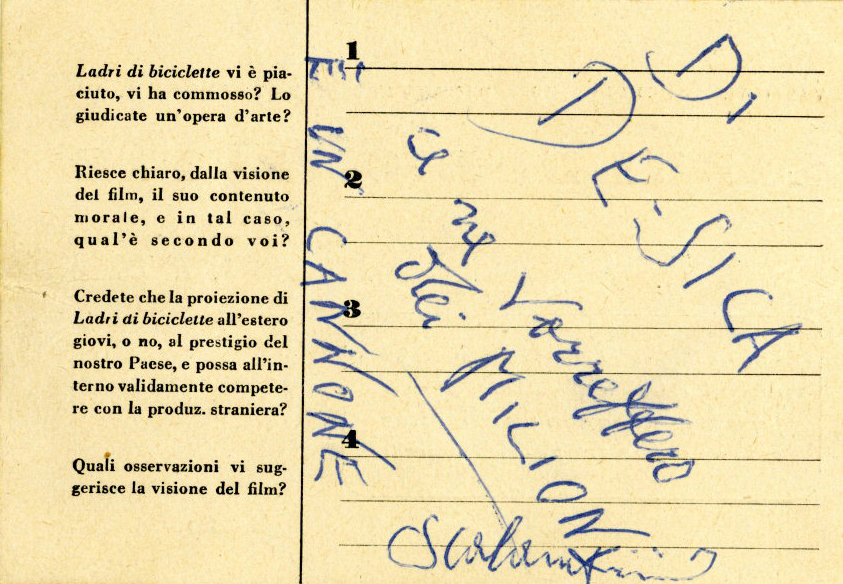 Ladri di biciclette vi è pia-
ciuto, vi ha commosso? Lo
giudicate un'opera d'arte?
Riesce chiaro, dalla visione
del film, il suo contenuto
morale, e in tal caso,
qual'è secondo voi?
Credete che la proiezione di
Ladri di biciclette all'estero
giovi, o no, al prestigio del
nostro Paese, e possa all'in-
terno validamente compete-
re con la produz. straniera?
Quali osservazioni vi sug-
gerisce la visione del film?
1
2
3
4
DI
DE-SICA
ce ne vorrebbero
dei MILIONI
È UN CANNONE